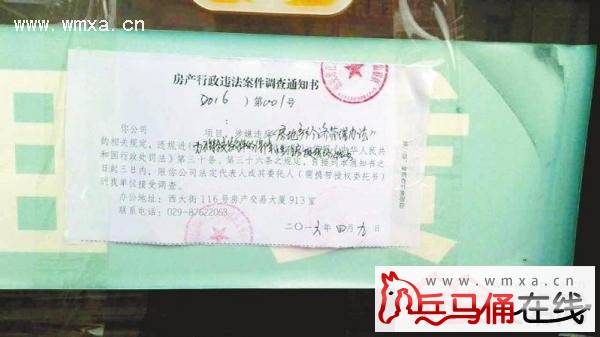 www.wmxa.cn
房产行政违法案件调查通知书
2016 ）第001号
你公司 项目，涉嫌违反《房地产经济管理办法》
的相关规定，违规进行 华人民共
和国行政处罚法》第三十条、第三十六条之规定，请接到本通知书之
日起三日内，限你公司法定代表人或其委托人（需携带授权委托书）
到我单位接受调查。
办公地址：西大街116号房产交易大厦913室
联系电话：029-87622063
二〇一六年 四月 九 日
www.wmxa.cn
兵马俑在线